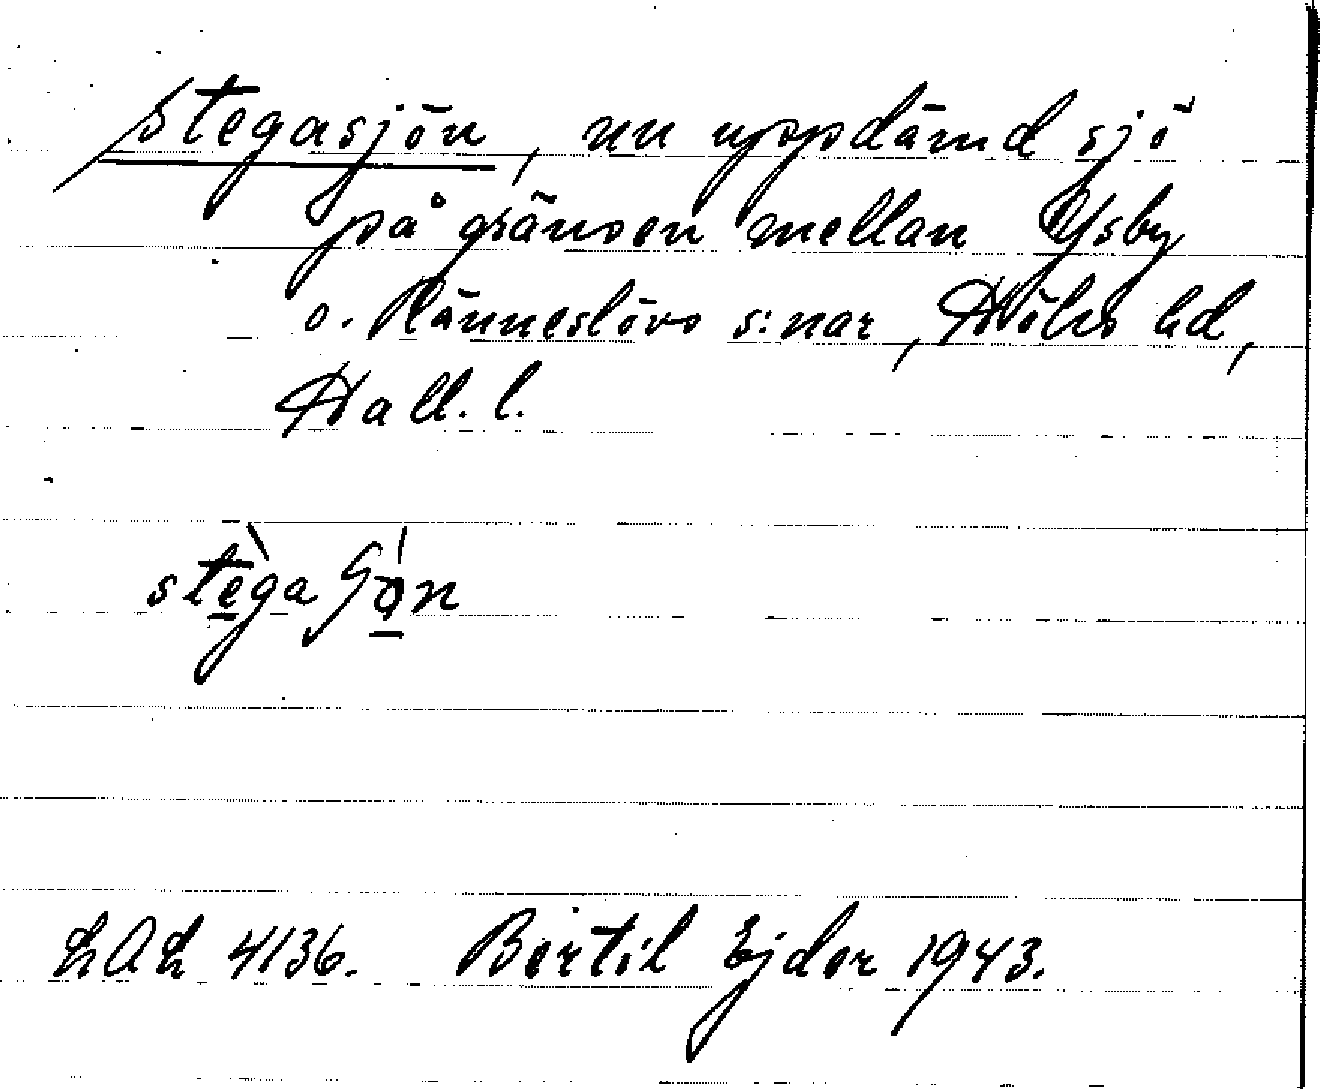 Stegasjön, nu uppdämd sjö
på gränsen mellan Ysby
o. Ränneslövs s:nar, Höks hd,
Hall. l.
stèga ʃǿn
LAL 4136. Bertil Ejder 1943.